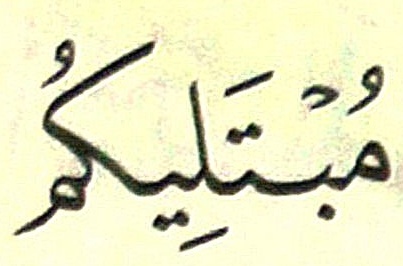 مُبْتَلِيكُم